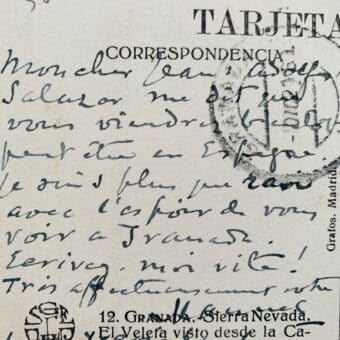 TARJETA
CORRESPONDENCIA
Mon cher Jean
Salazar me dit que
vous viendrez
peut être en Espagne.
Je suis plus que ravi
avec l'espoir de vous
voir a Granada.
Ecrivez-moi vite!
Très affectueusement votre
Manuel
12. GRANADA.-Sierra Nevada.
El Veleta visto desde la Ca-
Grafos. Madrid